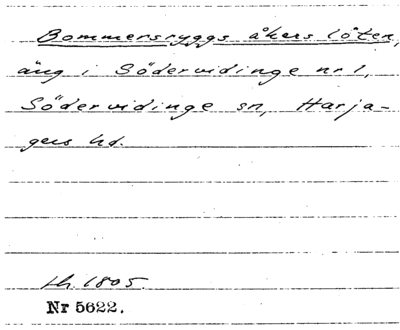 Bommersryggs åkers löten,
äng i Södervidinge nr 1,
Södervidinge sn, Harja-
gers hd.
lh. 1805.
Nr 5622.